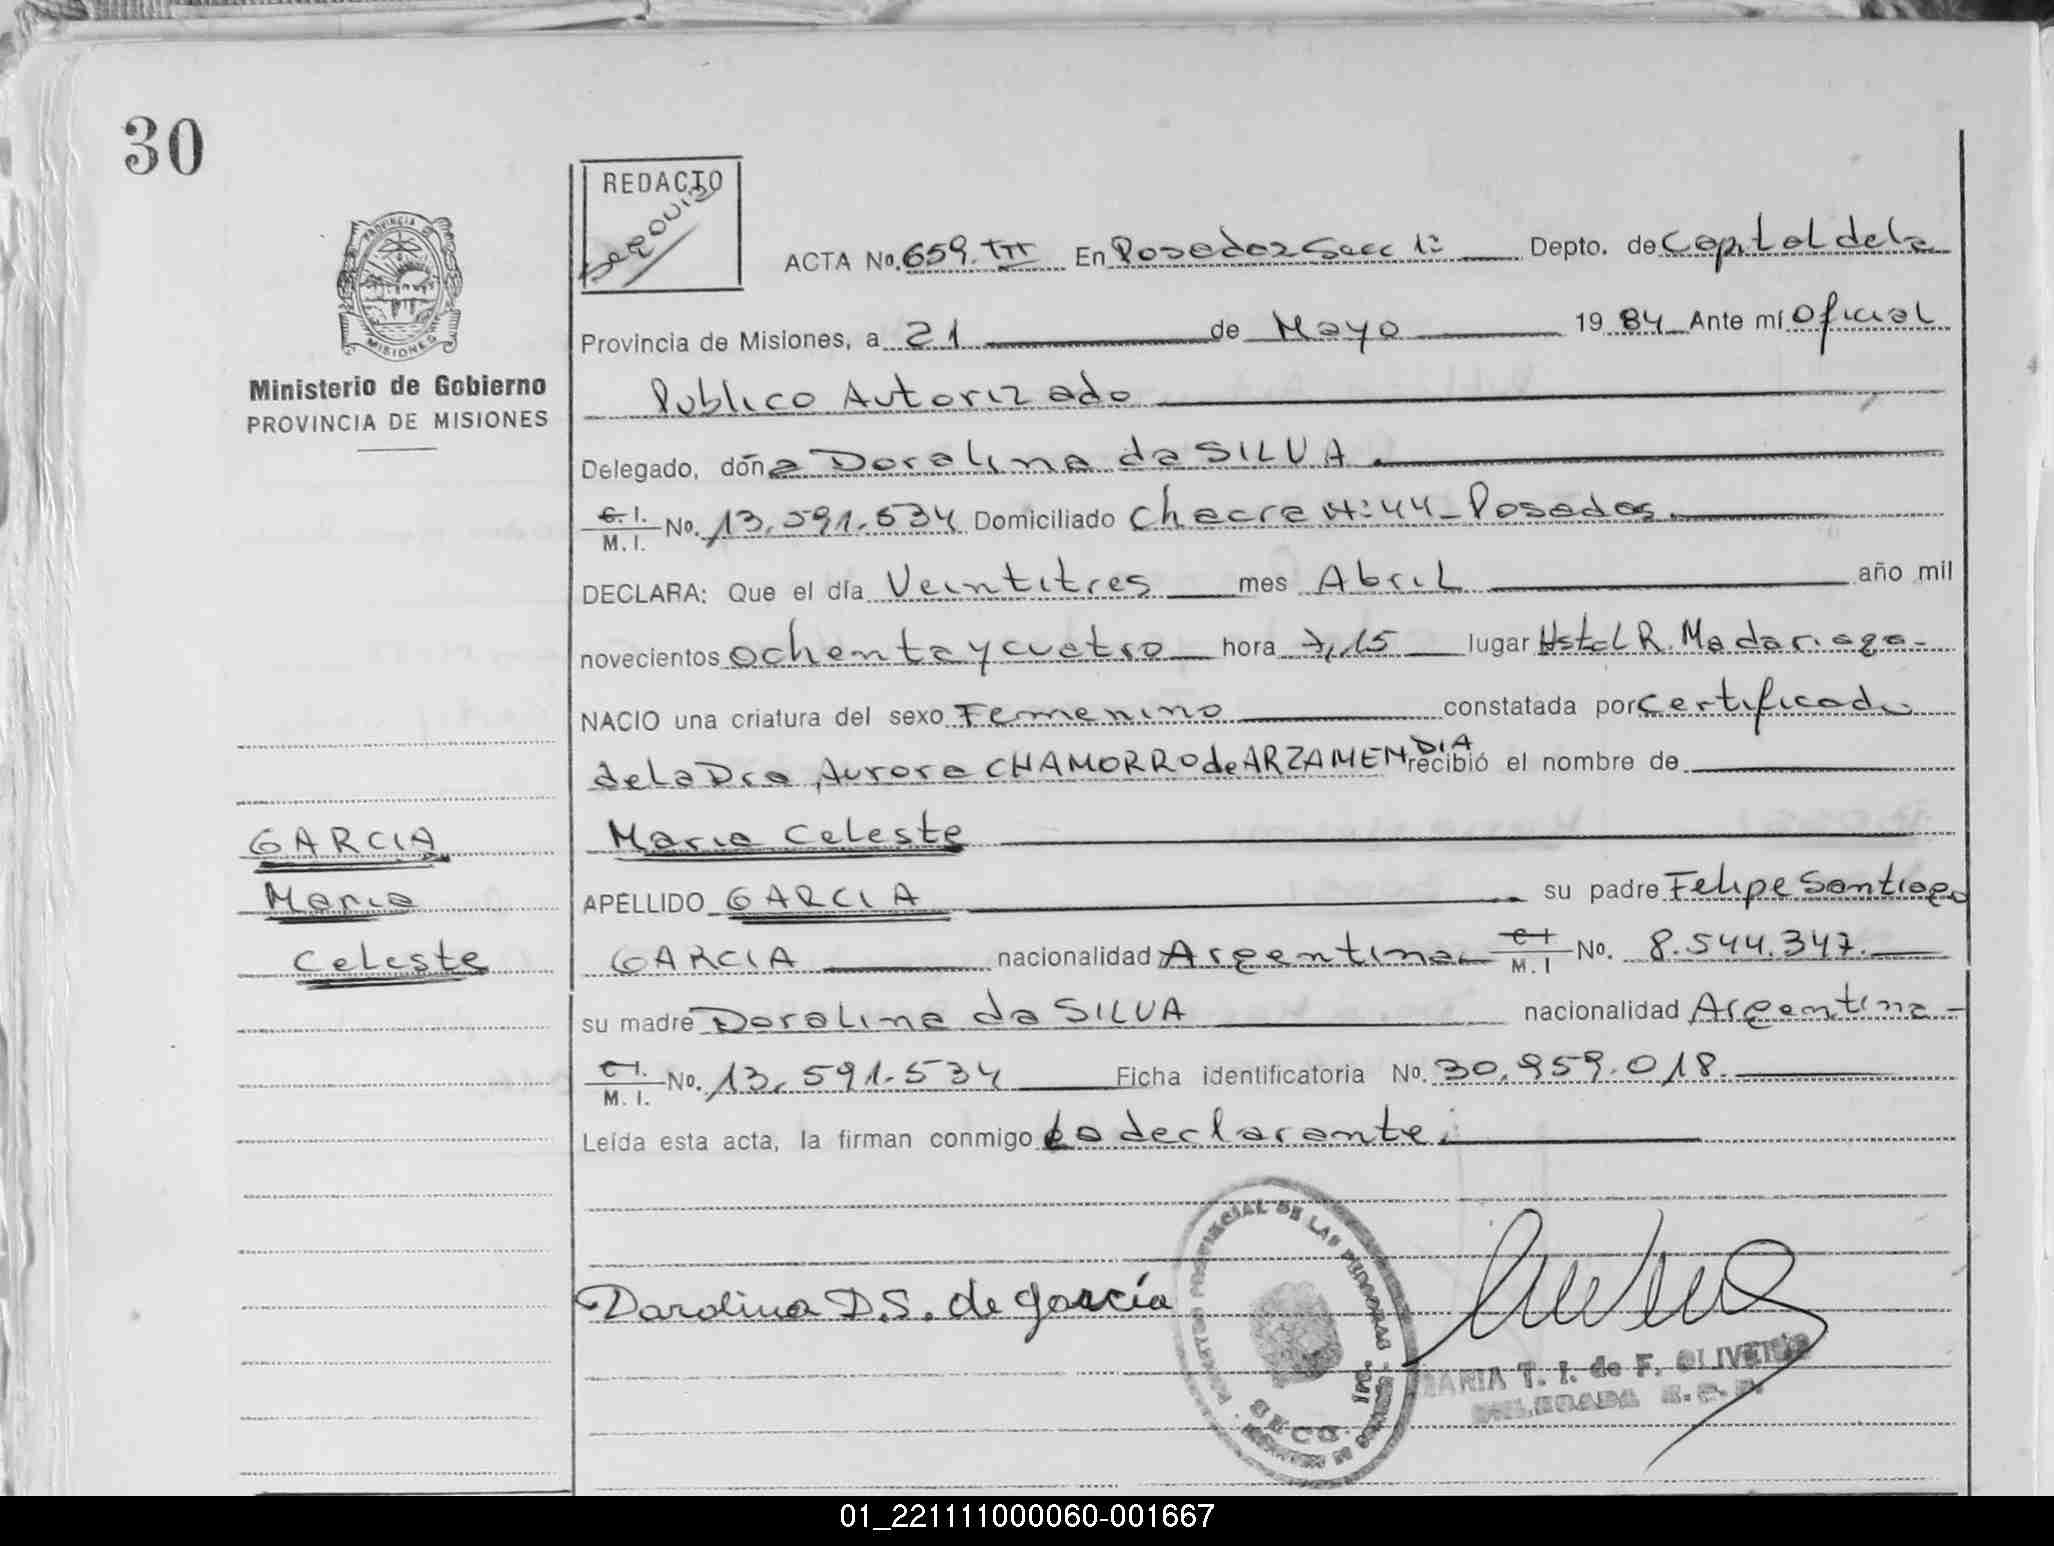 30
REDACTO
PROVINCIA
MISIONES
Ministerio de Gobierno
PROVINCIA DE MISIONES
ACTA No. 659. TIII En Posadas Secc 1ª Depto. de Capital de la
Provincia de Misiones, a 21 de Mayo 19 84 Ante mí Oficial
Publico Autorizado
Delegado, doña Doralina da SILVA.
C. I. / M. I. No. 13.591.534 Domiciliado Chacra Nº 44 - Posadas.
DECLARA: Que el día Veintitres mes Abril año mil
novecientos ochenta y cuatro hora 7,15 lugar Hstal R. Madariaga -
NACIO una criatura del sexo Femenino constatada por certificado
de La Dra Aurora CHAMORRO de ARZAMENDIA recibió el nombre de
GARCIA Maria Celeste
Maria APELLIDO GARCIA su padre Felipe Santiago
Celeste GARCIA nacionalidad Argentina C I / M. I No. 8.544.347.
su madre Doralina da SILVA nacionalidad Argentina -
C I. / M. I. No. 13.591.534 Ficha identificatoria No. 30.959.018.
Leída esta acta, la firman conmigo La declarante.
Darolina D.S. de García
PROVINCIAL DE LAS PERSONAS
SECC. 1ra.
MARIA T. I. de F. OLIVEIRA
DELEGADA R. C. P.
01_221111000060-001667